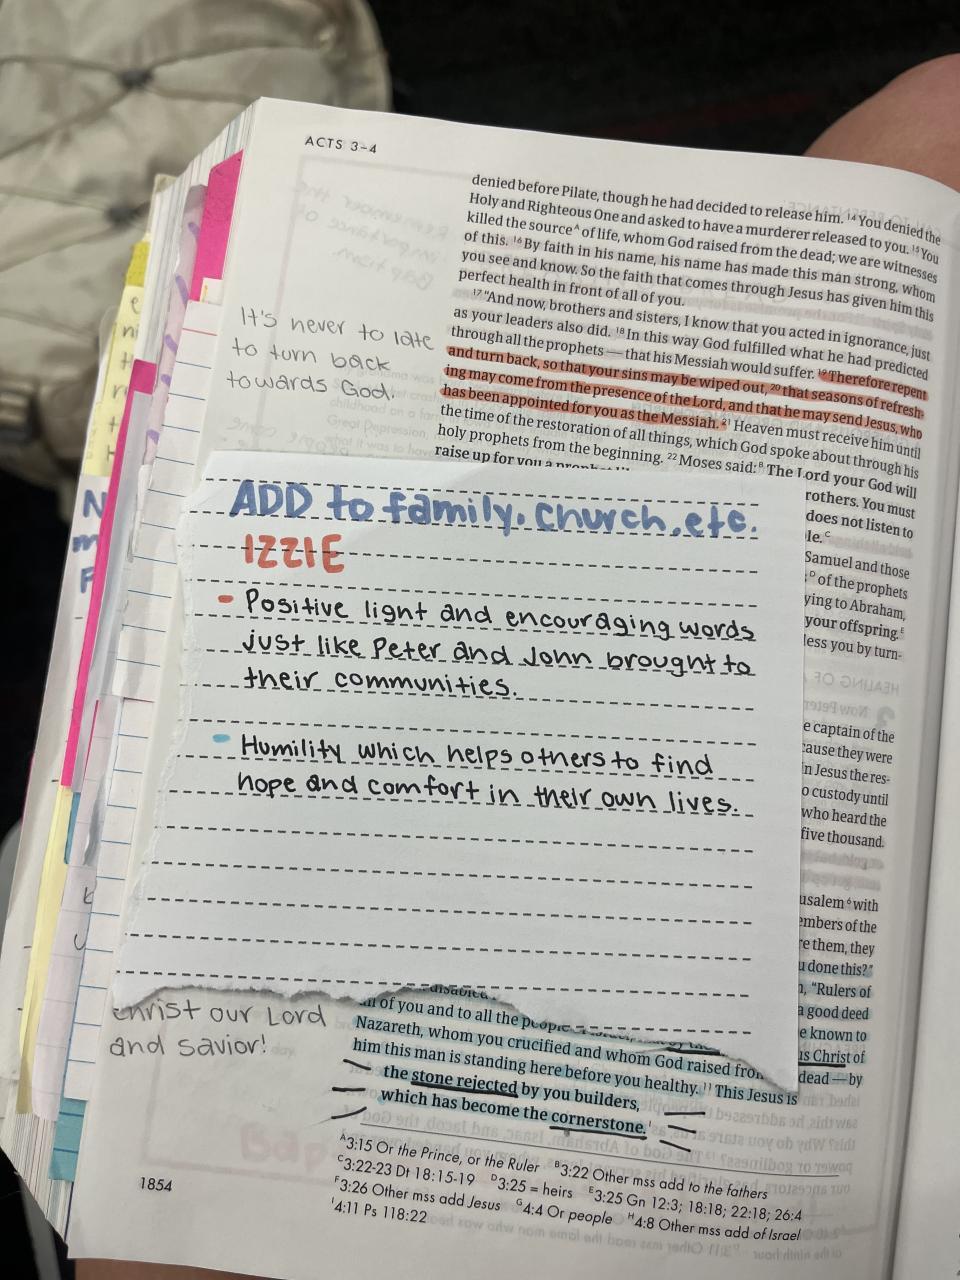 ACTS 3–4
denied before Pilate, though he had decided to release him. 14 You denied the
Holy and Righteous One and asked to have a murderer released to you. 15 You
killed the sourceᴬ of life, whom God raised from the dead; we are witnesses
of this. 16 By faith in his name, his name has made this man strong, whom
you see and know. So the faith that comes through Jesus has given him this
perfect health in front of all of you.
17 "And now, brothers and sisters, I know that you acted in ignorance, just
as your leaders also did. 18 In this way God fulfilled what he had predicted
through all the prophets — that his Messiah would suffer. 19 Therefore repent
and turn back, so that your sins may be wiped out, 20 that seasons of refresh-
ing may come from the presence of the Lord, and that he may send Jesus, who
has been appointed for you as the Messiah. 21 Heaven must receive him until
the time of the restoration of all things, which God spoke about through his
holy prophets from the beginning. 22 Moses said:ᴮ The Lord your God will
raise up for you a
rothers. You must
does not listen to
le.ᶜ
Samuel and those
ᴰ of the prophets
ying to Abraham,
your offspring.ᴱ
less you by turn-
It's never to late
to turn back
towards God.
ADD to family, church, etc.
IZZIE
- Positive light and encouraging words
just like Peter and John brought to
their communities.
- Humility which helps others to find
hope and comfort in their own lives.
HEALING OF
Now Peter
e captain of the
cause they were
n Jesus the res-
o custody until
who heard the
five thousand.
usalem 6 with
embers of the
re them, they
u done this?"
, "Rulers of
a good deed
e known to
us Christ of
dead — by
christ our Lord
and savior!
disabled
all of you and to all the people
Nazareth, whom you crucified and whom God raised from
him this man is standing here before you healthy. 11 This Jesus is
the stone rejected by you builders,
which has become the cornerstone.ᴵ
ᴬ3:15 Or the Prince, or the Ruler ᴮ3:22 Other mss add to the fathers
ᶜ3:22-23 Dt 18:15-19 ᴰ3:25 = heirs ᴱ3:25 Gn 12:3; 18:18; 22:18; 26:4
ꟳ3:26 Other mss add Jesus ᴳ4:4 Or people ᴴ4:8 Other mss add of Israel
ᴵ4:11 Ps 118:22
1854